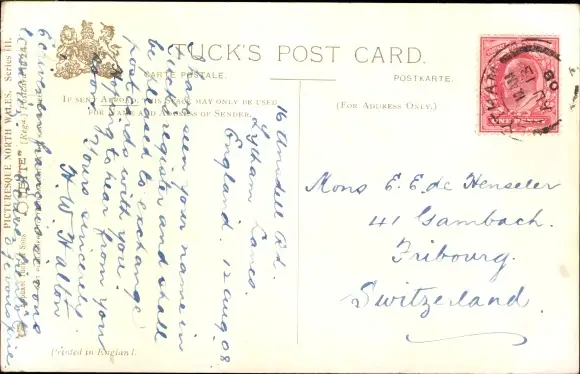 TUCK'S POST CARD.
CARTE POSTALE.
POSTKARTE.
IF SENT ABROAD, THIS SPACE MAY ONLY BE USED
FOR NAME AND ADDRESS OF SENDER.
(FOR ADDRESS ONLY.)
ONE PENNY
16 Arundell Rd.
Lytham Lancs.
England. 12 Aug. 08.
I have seen your name in
Tuck's register and shall
be pleased to exchange
post cards with you.
Hoping to hear from you
soon
Yours sincerely
H. W. Halton
Mons E. E. de Henseler
41 Gambach.
Fribourg.
Switzerland.
PICTURESQUE NORTH WALES. Series III.
Printed in England.